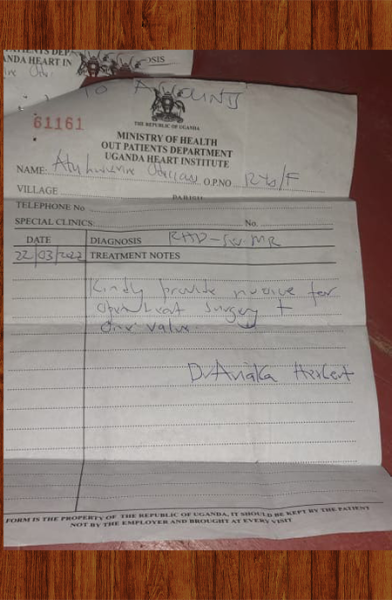 OSIS
PATIENTS DEP
ANDA HEART IN
TO ACCOUNTS
THE REPUBLIC OF UGANDA
61161
MINISTRY OF HEALTH
OUT PATIENTS DEPARTMENT
UGANDA HEART INSTITUTE
NAME: O.P.NO
VILLAGE PARISH
TELEPHONE No
SPECIAL CLINICS: No.
DATE DIAGNOSIS RHD - MR
22/03/2022 TREATMENT NOTES
Kindly provide invoice for
open heart surgery +
one valve.
Dr Anaka Herbert
FORM IS THE PROPERTY OF THE REPUBLIC OF UGANDA, IT SHOULD BE KEPT BY THE PATIENT
NOT BY THE EMPLOYER AND BROUGHT AT EVERY VISIT